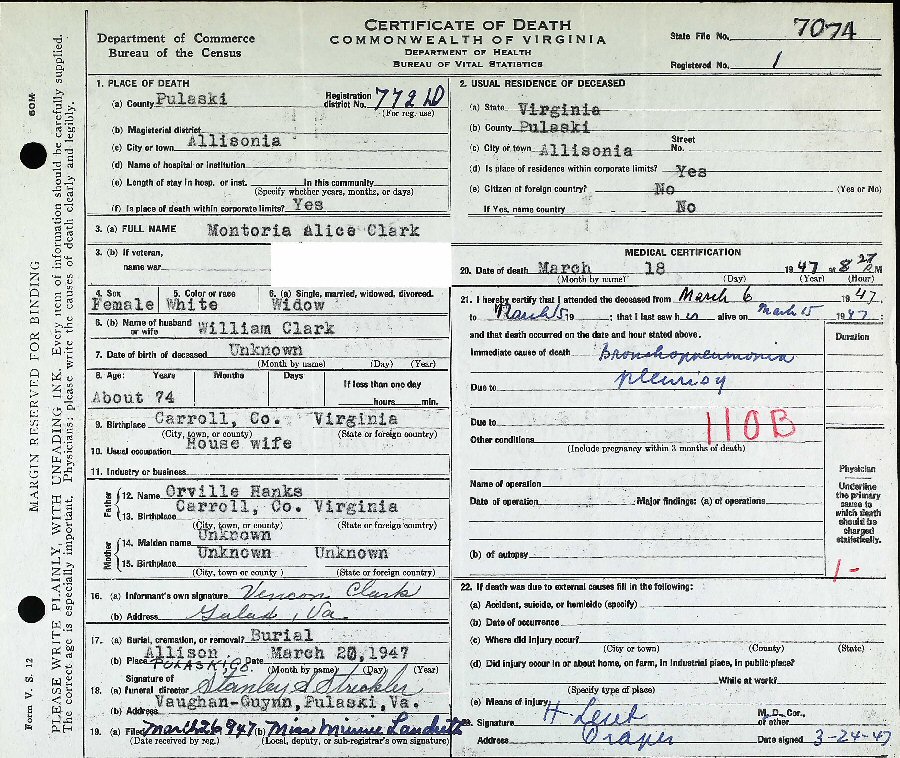 CERTIFICATE OF DEATH
COMMONWEALTH OF VIRGINIA
DEPARTMENT OF HEALTH
BUREAU OF VITAL STATISTICS
Department of Commerce
Bureau of the Census
State File No. 7074
Registered No. 1
MARGIN RESERVED FOR BINDING
60M
PLEASE WRITE PLAINLY, WITH UNFADING INK. Every item of information should be carefully supplied.
The correct age is especially important. Physicians: please write the causes of death clearly and legibly.
Form V. S. 12
1. PLACE OF DEATH
(a) County Pulaski Registration district No. 772 (For reg. use)
(b) Magisterial district
(c) City or town Allisonia
(d) Name of hospital or institution
(e) Length of stay in hosp. or inst. In this community
(Specify whether years, months, or days)
(f) Is place of death within corporate limits? Yes
2. USUAL RESIDENCE OF DECEASED
(a) State Virginia
(b) County Pulaski
(c) City or town Allisonia Street No.
(d) Is place of residence within corporate limits? Yes
(e) Citizen of foreign country? No (Yes or No)
If Yes, name country No
3. (a) FULL NAME Montoria Alice Clark
3. (b) If veteran,
name war
4. Sex 5. Color or race 6. (a) Single, married, widowed, divorced.
Female White Widow
6. (b) Name of husband or wife William Clark
7. Date of birth of deceased Unknown
(Month by name) (Day) (Year)
8. Age: Years Months Days If less than one day
About 74 hours min.
9. Birthplace Carroll, Co. Virginia
(City, town, or county) (State or foreign country)
10. Usual occupation House wife
11. Industry or business
Father
12. Name Orville Hanks
13. Birthplace Carroll, Co. Virginia
(City, town, or county) (State or foreign country)
Mother
14. Maiden name Unknown
15. Birthplace Unknown Unknown
(City, town or county ) (State or foreign country)
16. (a) Informant's own signature Clark
(b) Address Va.
17. (a) Burial, cremation, or removal? Burial
(b) Place Allison Date March 20, 1947
PULASKI CO. (Month by name) (Day) (Year)
18. (a) Signature of funeral director Stanley S Strickler
(b) Address Vaughan-Guynn, Pulaski, Va.
19. (a) Filed March 26 1947 (b) Miss Minnie Landreth
(Date received by reg.) (Local, deputy, or sub-registrar's own signature)
MEDICAL CERTIFICATION
20. Date of death March 18 1947 at 8 27 M
(Month by name) (Day) (Year) (Hour)
21. I hereby certify that I attended the deceased from March 6 1947
to March 15 19 ; that I last saw h er alive on March 15 1947;
and that death occurred on the date and hour stated above.
Duration
Immediate cause of death Bronchopneumonia
pleurisy
Due to
Due to
110B
Other conditions
(Include pregnancy within 3 months of death)
Name of operation
Date of operation :Major findings: (a) of operations
(b) of autopsy
Physician
Underline the primary cause to which death should be charged statistically.
1-
22. If death was due to external causes fill in the following:
(a) Accident, suicide, or homicide (specify)
(b) Date of occurrence
(c) Where did injury occur?
(City or town) (County) (State)
(d) Did injury occur in or about home, on farm, in industrial place, in public place?
While at work?
(Specify type of place)
(e) Means of injury
23. Signature M. D., Cor., or other
Address Draper Date signed 3-24-47